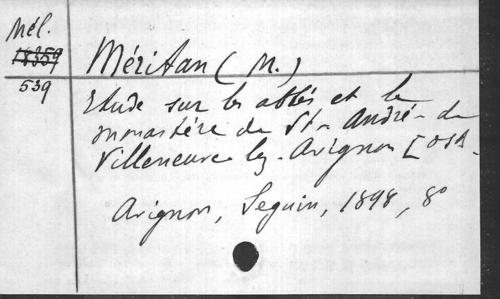 Mél.
18359
539
Méritan (M.)
Etude sur les abbés et le
monastère de St-André-de
Villeneuve-lez-Avignon [OSA.
Avignon, Seguin, 1898, 8°